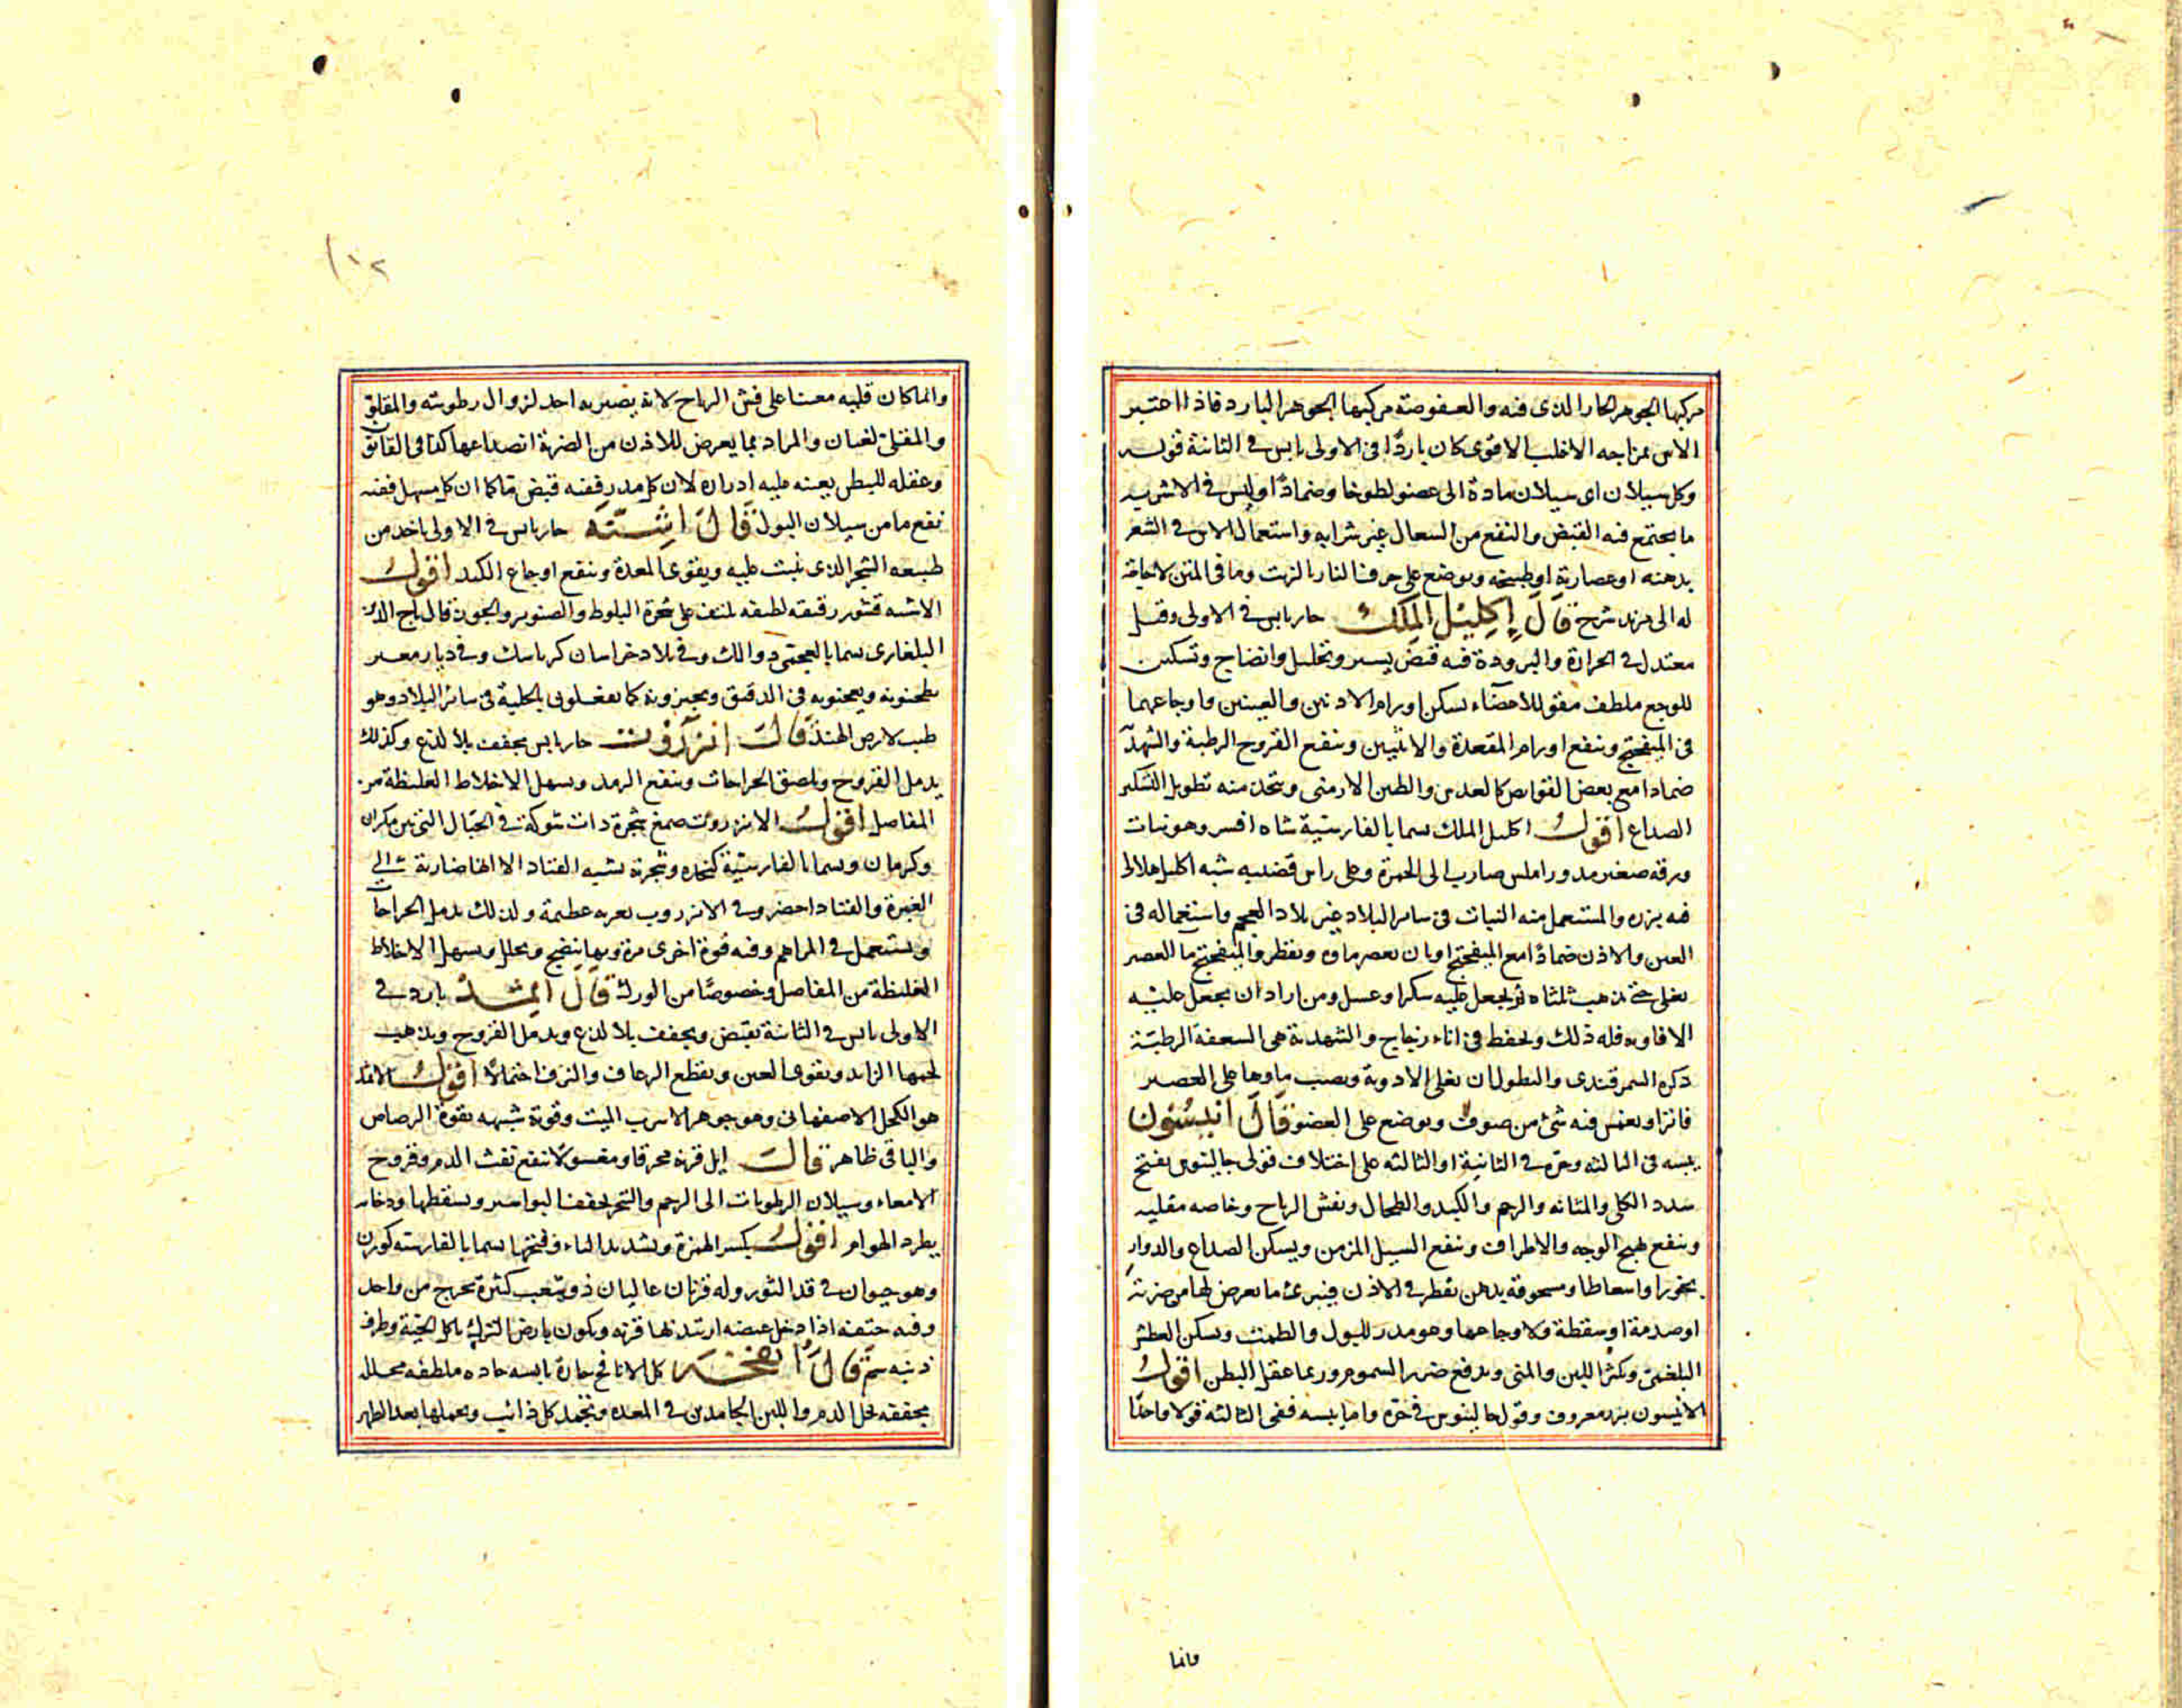 مركبها الجوهر الحار الذى فيه والعفوصة مركبها الجوهر البارد فاذا اختبر
الاس بمزاجه الاغلب الاقوى كان باردًا فى الاولى يابس فى الثانية قوله
وكل سيلان اى سيلان مادة الى عضو لطوخا وضمادًا وليس فى الاشربه
ما يجتمع فيه القبض والنفع من السعال غير شرابه واستعمال الاس فى الشعر
بدهنه او عصارته او طبيخه ويوضع على حرق النار بالزيت وما فى المتن لا حاجة
له الى مزيد شرح قَالَ إِكلِيْل المَلِك حار يابس فى الاولى وقيل
معتدل فى الحرارة والبرودة فيه قبض يسير وتحليل وانضاج وتسكين
للوجع ملطف مقو للاعضاء يسكن اورام الاذنين والعينين واوجاعهما
فى الميفختج وينفع اورام المقعدة والانثيين وينفع القروح الرطبة والشهدية
ضمادا مع بعض القوابض كالعدس والطين الارمنى ويتخذ منه نطول لتسكين
الصداع اقول اكليل الملك يسما بالفارسية شاه افسر وهو نبات
ورقه صغير مدور املس ضارب الى الحمرة وعلى راس قضيبه شبه اكليل هلالى
فيه بزره والمستعمل منه النبات فى ساير البلاد غير بلاد العجم واستعماله فى
العين والاذن ضمادًا مع الميفختج او بان يعصر ماوه ويقطر والميفختج ما العصير
يغلى حتى يذهب ثلثاه ثم يجعل عليه سكر او عسل ومن اراد ان يجعل عليه
الافاويه فله ذلك ويحفظ فى اناء زجاج والشهدية هى السعفة الرطبة
ذكره السمرقندى والنطول ان يغلى الادوية ويصب ماوها على العصير
فاترا ويغمس فيه شئ من صوف ويوضع على العضو قَالَ انيسُون
يبسه فى الثالثه وحره فى الثانية او الثالثه على اختلاف قولى جالينوس يفتح
سدد الكلى والمثانه والرحم والكبد والطحال ويفش الرياح وخاصه مقليه
وينفع تهيج الوجه والاطراف وينفع السبل المزمن ويسكن الصداع والدوار
بخورا واسعاطا ومسحوقه بدهن يقطر فى الاذن فيبرئ ما يعرض لها من ضربة
او صدمة او سقطة ولاوجاعها وهو مدر للبول والطمث ويسكن العطش
البلغمى ويكثر اللبن والمنى ويدفع ضرر السموم وربما عقل البطن اقول
الانيسون بزر معروف وقول جالينوس فى حره واما يبسه ففى الثالثه قولا واحدًا
وانما
١٢
وانما كان قليه معينا على فش الرياح لانه يصير به احد لزوال رطوبته والمقلو
والمقلى لغتان والمراد بما يعرض للاذن من الضربة انصداعها كذا فى القانون
وعقله للبطن يعينه عليه ادراره لان كل مدر ففيه قبض ما كما ان كل مسهل ففيه
نفع ما من سيلان البول قَالَ اشنه حار يابس فى الاولى ياخذ من
طبيعه الشجر الذى ينبت عليه ويقوى المعدة وينفع اوجاع الكبد اقول
الاشنه قشور رقيقه لطيفه تلتف على شجرة البلوط والصنوبر والجوز قال تاج الدين
البلغارى يسما بالعجمى دوالك وفى بلاد خراسان كرباسك وفى ديار مصر
يطحنونه ويعجنونه فى الدقيق ويخبزونه كما يفعلون بالحلبة فى سائر البلاد وهو
طيب لارض الهند قَالَ انزروت حار يابس يجفف بلا لذع وكذلك
يدمل القروح ويلصق الجراحات وينفع الرمد ويسهل الاخلاط الغليظة من
المفاصل اقول الانزروت صمغ شجرة ذات شوكة فى الجبال التى بين مكران
وكرمان ويسما بالفارسية كنجده وشجرته تشبه القتاد الا انها ضاربة الى
الغبرة والقتاد اخضر وفى الانزروت تغرية عظيمة ولذلك يدمل الجراحا
ويستعمل فى المراهم وفيه قوة اخرى مرة وبها ينضج ويحلل ويسهل الاخلاط
الغليظة من المفاصل وخصوصًا من الورك قَالَ اثمد بارد فى
الاولى يابس فى الثانية يقبض ويجفف بلا لذع ويدمل القروح ويذهب
لحمها الزايد ويقوى العين ويقطع الرعاف والنزف احتمالًا اقول الاثمد
هو الكحل الاصفهانى وهو جوهر الاسرب الميت وقوته شبيهه بقوة الرصاص
والباقى ظاهر قَالَ ايل قرنه محرقا ومغسولًا ينفع نفث الدم وقروح
الامعاء وسيلان الرطوبات الى الرحم والتبخر يجفف البواسير ويسقطها ودخانه
يطرد الهوام اقول بكسر الهمزة وتشديد الياء وفتحها يسما بالفارسيه كوزن
وهو حيوان فى قد الثور وله قرنان عاليان ذو شعب كثيرة تخرج من واحد
وفيه حتفه اذا دخل غيضه ارتبد بها قرنه ويكون بارض الترك ياكل الحية وطرف
ذنبه سم قَالَ انفحَه كل الانافح حارة يابسه حاده ملطفه محلله
مجففه تحل الدم واللبن الجامدين فى المعده وتجمد كل ذائب وبعملها بعد الطهر